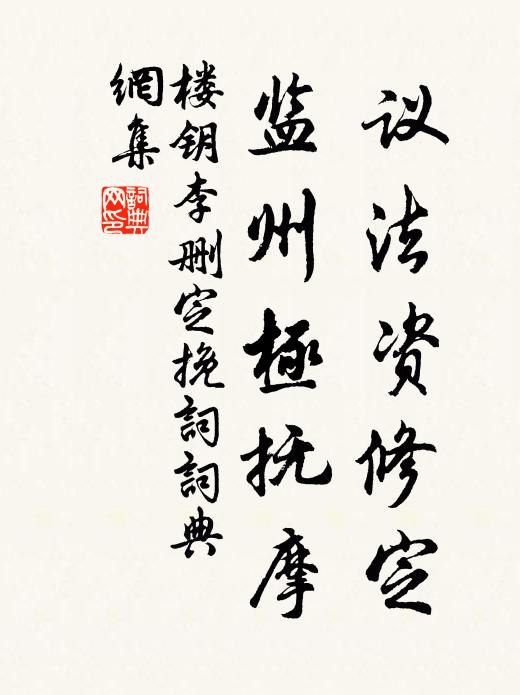 议法资修定
监州極抚摩
楼钥李删定挽詞詞典
網集
詞典网印